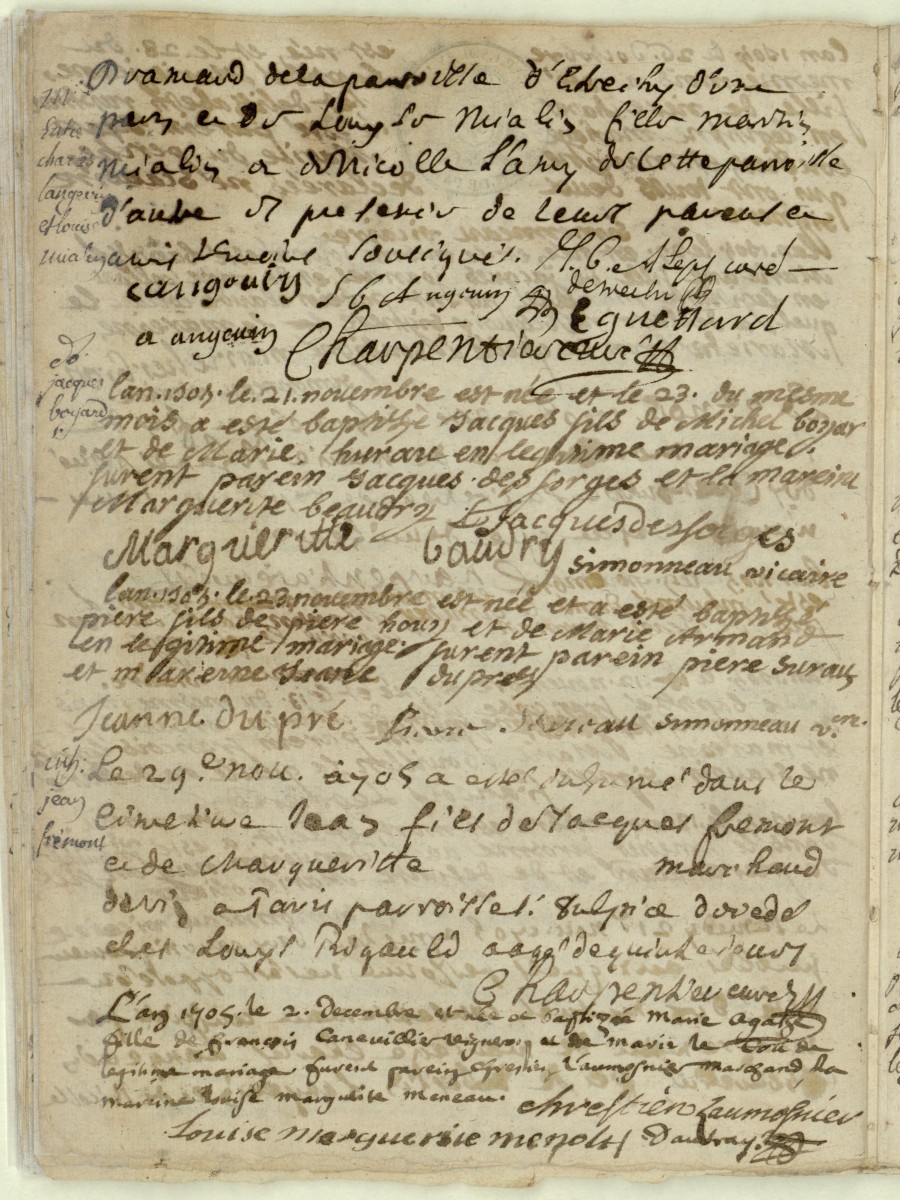 de la parroisse d'Estrechy d'une
part et de Louyse Mialin fille
Mialin et de Nicolle de cette parroisse
d'autre et presence de leurs parens et
amis temoins soussignés.
Langevin
et louise
mialin
cangouin S b Angouin
a angouin Eguettard
Charpentier curé
jacques
boyard
lan.1705. le.21. novembre est née et le 23. du mesme
mois a esté baptisse Jacques fils de Michel boyar
et de Marie. hurau en legitime mariage.
furent parein Jacques desforges et la mareine
Marguerite beaudry Jacques Desforges
Margueritte baudry simonneau vicaire
lan.1705. le.23 novembre est née et a esté baptisé
piere fils de piere houy et de Marie Armand
en legitime mariage. furent parein piere surau
et marenne Jeane duprés
Jeanne Du pré Pierre simonneau v.re
inh.
jean
fremont
Le 29.e nov. 1705 a esté inhumé dans le
cimetiere Jean fils de Jacques fremont
et de Margueritte marchand
de vin a Paris parroisse s.t Sulpice decedé
chez Louys Rigauld aagé de quinze jours
Charpentier curé
L'an 1705. le 2. decembre est née et baptizée Marie agathe
fille de françois vigneron et de marie le
legitime mariage furent parein chrestien Laumosnier marchand la
mareine Louise marguerite meneau. chrestien Laumosnier
Louise Marguerite Dautray